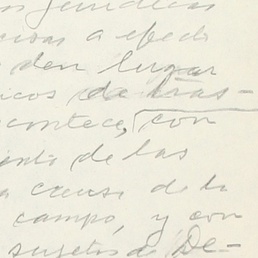 os jurídicos
a efecto
den lugar
icos de tras-
contece, con
iento de las
a causa de la
campo, y con
sujetos a De-